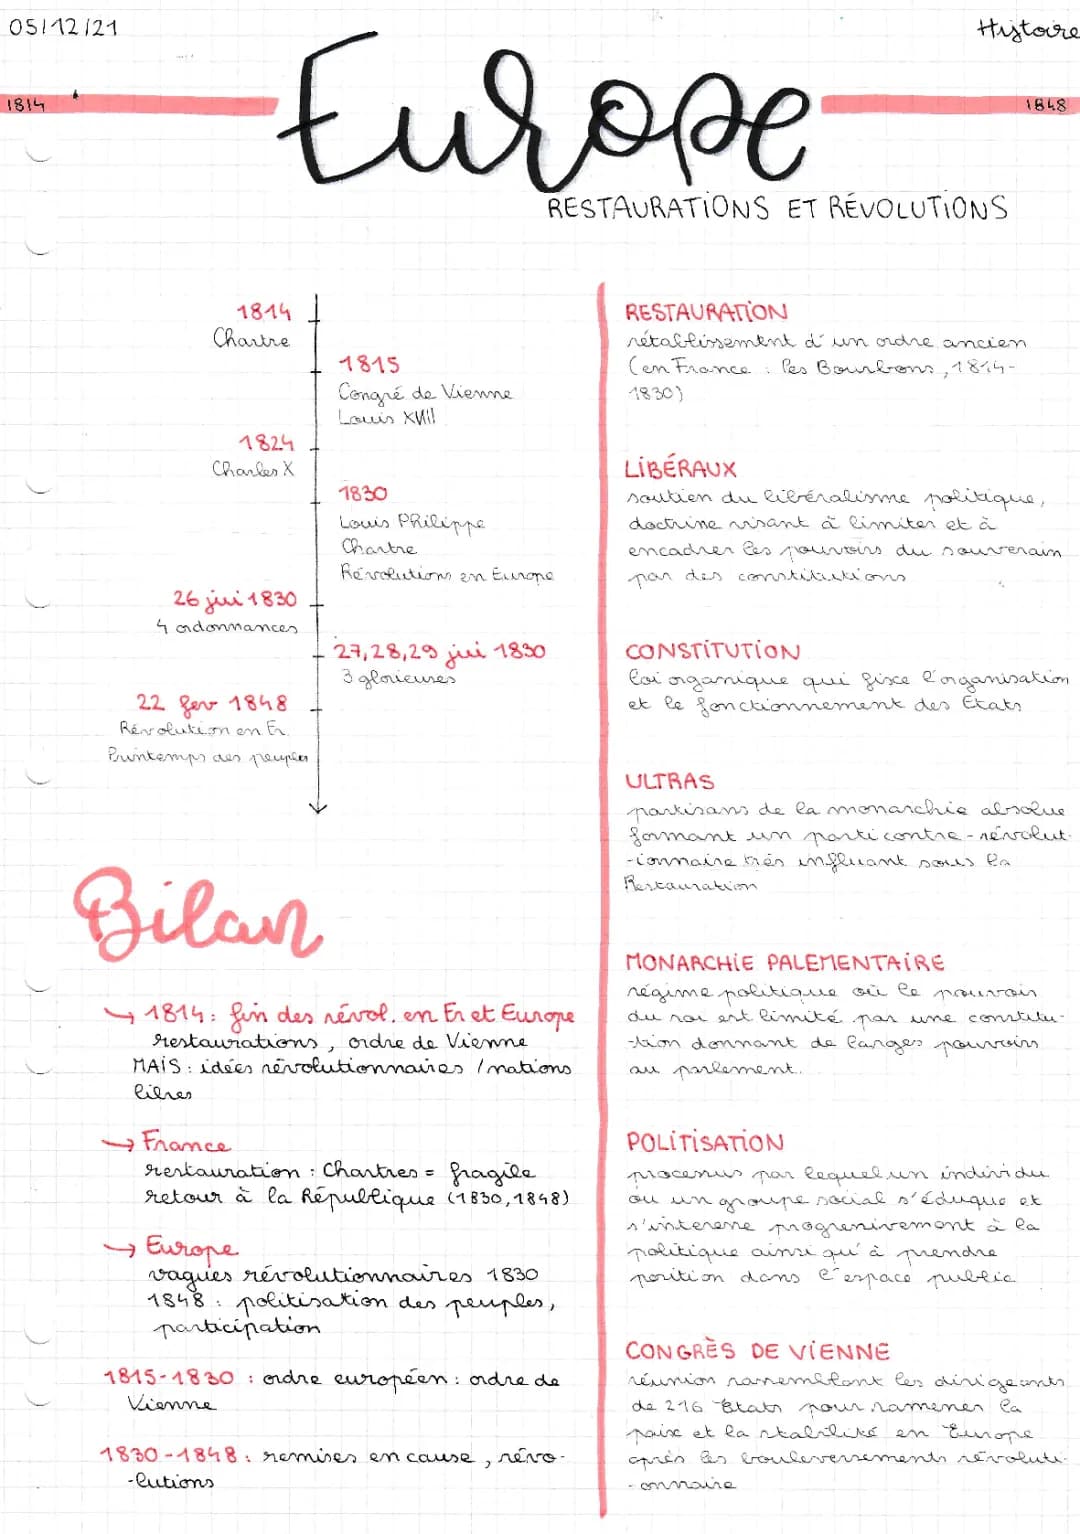 05/12/21
Histoire
1814
1848
Europe
RESTAURATIONS ET RÉVOLUTIONS
1814
Chartre
1815
Congré de Vienne
Louis XVIII
1824
Charles X
1830
Louis Philippe
Chartre
Révolutions en Europe
26 jui 1830
4 ordonnances
27,28,29 jui 1830
3 glorieuses
22 fev 1848
Révolution en Fr.
Printemps des peuples
Bilan
→ 1814 : fin des révol. en Fr et Europe
restaurations, ordre de Vienne
MAIS : idées révolutionnaires / nations
libres
→ France
restauration : Chartres = fragile
retour à la République (1830, 1848)
→ Europe
vagues révolutionnaires 1830
1848 : politisation des peuples,
participation
1815-1830 : ordre européen : ordre de
Vienne
1830-1848 : remises en cause, révo-
-lutions
RESTAURATION
rétablissement d'un ordre ancien
(en France : les Bourbons, 1814-
1830)
LIBÉRAUX
soutien du libéralisme politique,
doctrine visant à limiter et à
encadrer les pouvoirs du souverain
par des constitutions
CONSTITUTION
loi organique qui fixe l'organisation
et le fonctionnement des États
ULTRAS
partisans de la monarchie absolue
formant un parti contre-révolut-
-ionnaire très influant sous la
Restauration
MONARCHIE PALEMENTAIRE
régime politique où le pouvoir
du roi est limité par une constitu-
-tion donnant de larges pouvoirs
au parlement.
POLITISATION
processus par lequel un individu
ou un groupe social s'éduque et
s'interesse progressivement à la
politique ainsi qu'à prendre
position dans l'espace public
CONGRÈS DE VIENNE
réunion rassemblant les dirigeants
de 216 États pour ramener la
paix et la stabilité en Europe
après les bouleversements révoluti-
-onnaire